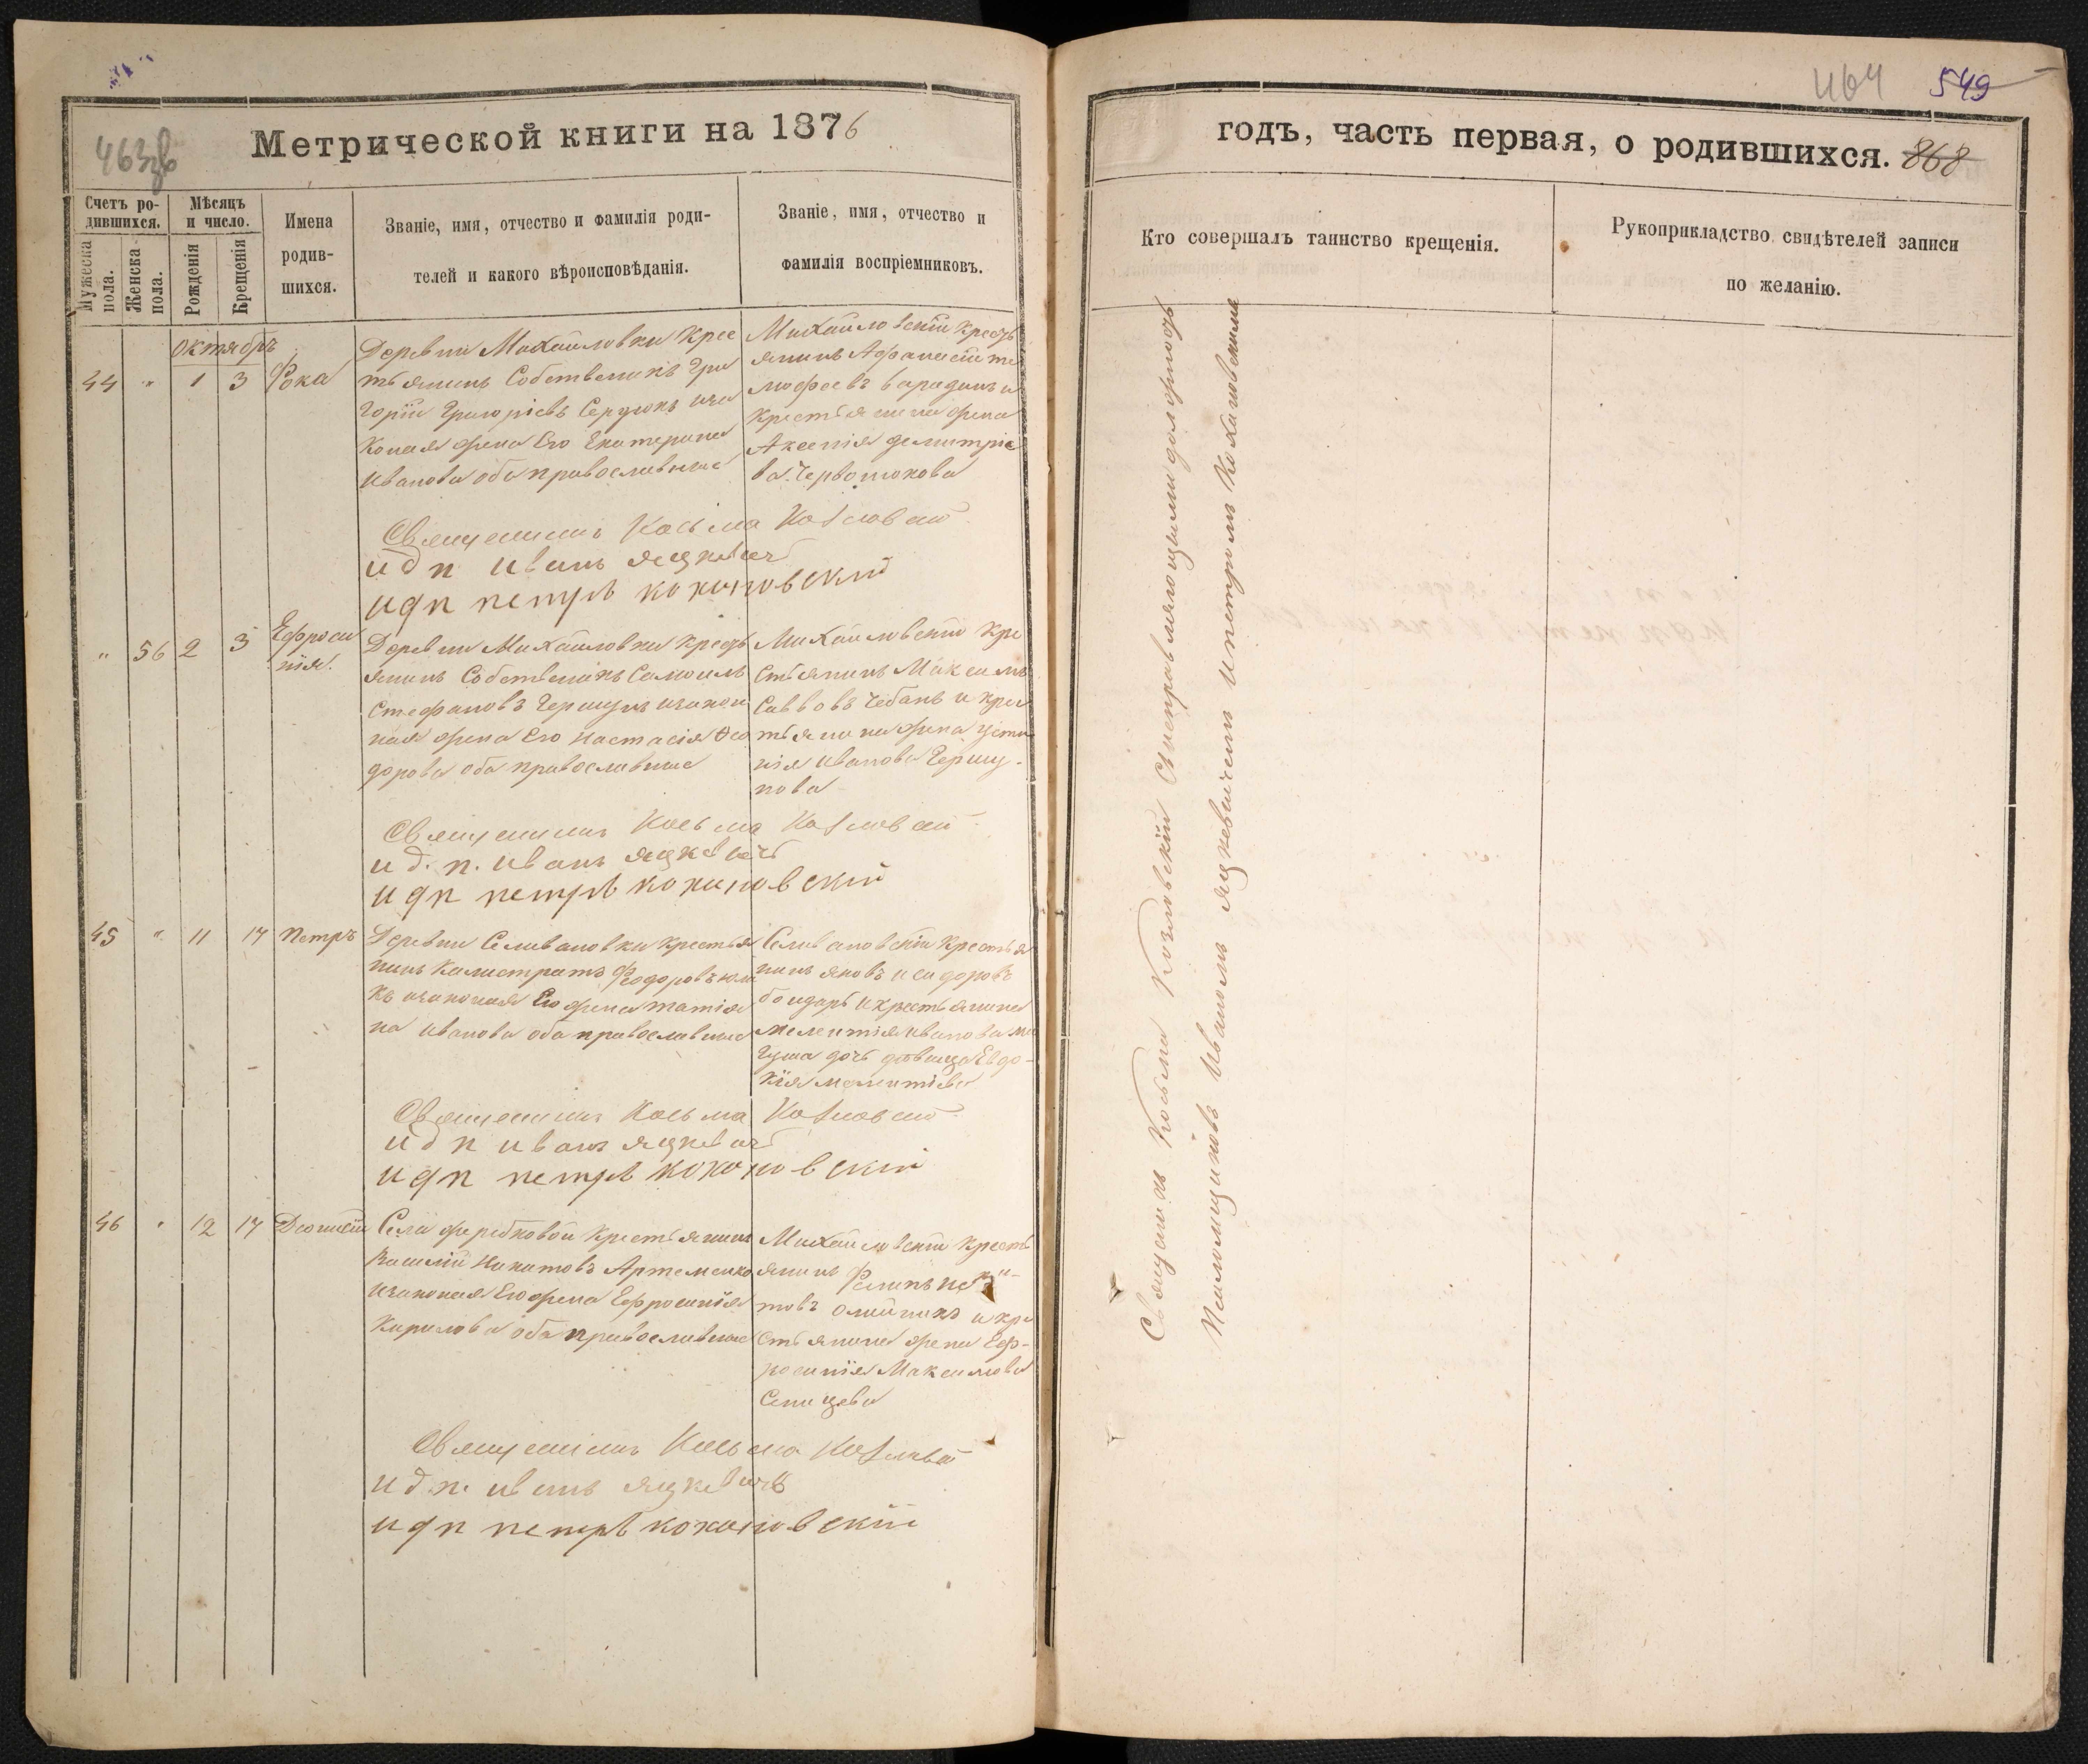 463зв
Метрической книги на 1876
Счетъ ро-
дившихся.
Мѣсяцъ
и число.
Мужеска
пола.
Женска
пола.
Рожденія
Крещенія
Имена
родив-
шихся.
Званіе, имя, отчество и фамилія роди-
телей и какого вѣроисповѣданія.
Званіе, имя, отчество и
фамилія воспріемниковъ.
октябрь
44 " 1 3 Фока
Деревни Михайловки Крес
тьянинъ Собственикъ Гри
горій Григоріевъ Сердюкъ иза
коная жена Его Екатерина
Иванова оба православные
Михайловскій Кресть
янинъ Афанасій ти
мофеевъ барадинъ и
Крестьянина жена
Аксенія димитріе
ва Червонокова
Священникъ Косьма Козловскій
и д п иванъ яцкевичъ
и д п петръ кохановскій
" 56 2 3 Ефроси
нія.
Деревни Михайловки Кресть
янинъ Собственікъ Самоилъ
Стефановъ Чершунъ изакон
ная жена Его Настасія Фео
дорова оба православные
Михайловскій Кре
стьянинъ Максимъ
Саввовъ Чебанъ и Крес
тьянина жена Усти
нія Иванова Чершу-
нова
Священникъ Косьма Козловскій
и д. п. иванъ яцкевичъ
и д п петръ кохановскій
45 " 11 17 Петръ
Деревни Селивановки Крестья
нинъ Калистратъ Феодоровъ
изаконая Его жена татія
на Иванова оба православные
Селивановскій Крестья
нинъ яковъ исидоровъ
бондарь и крестьянина
мелентія Иванова
дочь дѣвица Евдо-
кія мелентіева
Священникъ Косьма Козловскій
и д п иванъ яцкевичъ
и д п петръ кохановскій
46 " 12 17 Деонисій
Села жеребковой Крестьянинъ
Василій Никитовъ Артеменко
изаконая Его жена Ефросинія
Кирилова оба православные
Михайловскій Кресть
янинъ Филипъ
товъ Олийникъ и кре
стьянина жена Еф-
росинія Максимова
Синицева
Священникъ Косьма Козловскій
и д. п. иванъ яцкевичъ
и д п петръ кохановскій
464 549
годъ, часть первая, о родившихся. 868
Кто совершалъ таинство крещенія.
Рукоприкладство свидѣтелей записи
по желанію.
Священикъ Косьма Козловскій Сисправляющими должность
Псаломщиковъ Иваномъ яцкевичемъ и петромъ Кохановскимъ